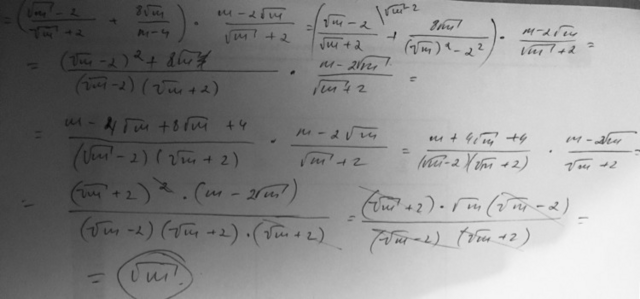 (√m - 2 / √m + 2 + 8√m / m - 4) · m - 2√m / √m + 2 = (√m - 2 / √m + 2 \√m - 2 + 8√m / (√m)² - 2²) · m - 2√m / √m + 2 =
= (√m - 2)² + 8√m / (√m - 2)(√m + 2) · m - 2√m / √m + 2 =
= m - 4√m + 8√m + 4 / (√m - 2)(√m + 2) · m - 2√m / √m + 2 = m + 4√m + 4 / (√m - 2)(√m + 2) · m - 2√m / √m + 2 =
= (√m + 2)² · (m - 2√m) / (√m - 2)(√m + 2) · (√m + 2) = (√m + 2) · √m (√m - 2) / (√m - 2)(√m + 2) =
= √m